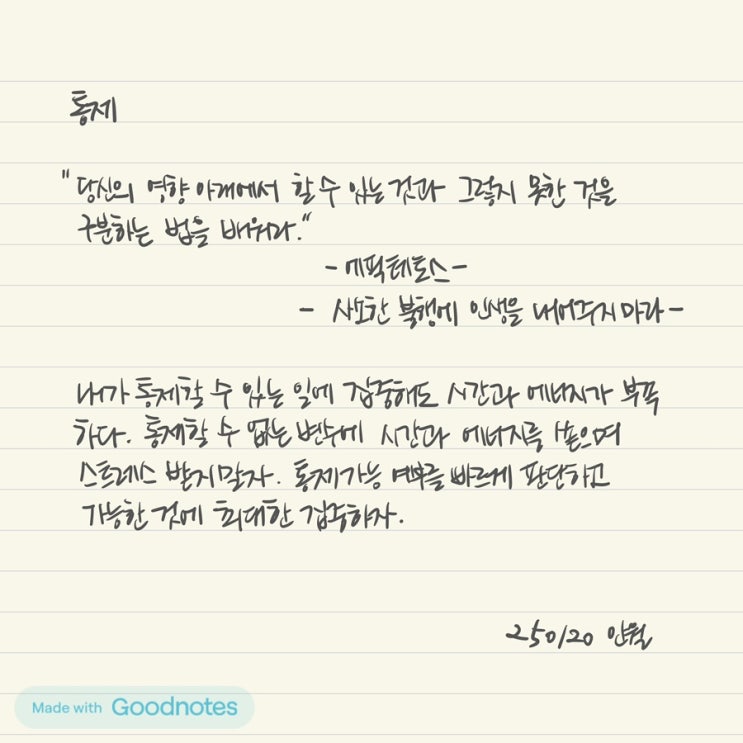 통제
"당신의 영향 아래에서 할 수 있는 것과 그렇지 못한 것을
구분하는 법을 배워라."
- 에픽테토스 -
- 사소한 불행에 인생을 내어주지 마라 -
내가 통제할 수 있는 일에 집중해도 시간과 에너지가 부족
하다. 통제할 수 없는 변수에 시간과 에너지를 쏟으며
스트레스 받지말자. 통제가능 여부를 빠르게 판단하고
가능한 것에 최대한 집중하자.
250120 인월
Made with Goodnotes